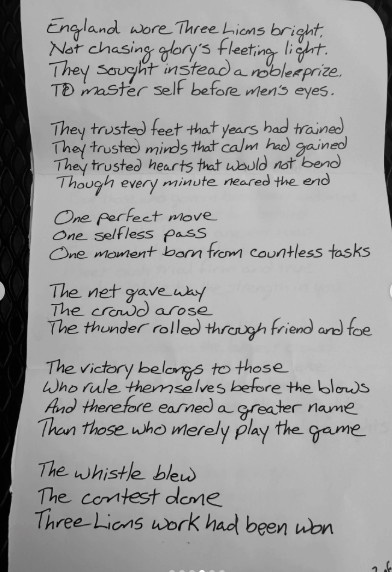 England wore Three Lions bright.
Not chasing glory's fleeting light.
They sought instead a nobler prize.
TO master self before men's eyes.
They trusted feet that years had trained
They trusted minds that calm had gained
They trusted hearts that would not bend
Though every minute neared the end
One perfect move
One selfless pass
One moment born from countless tasks
The net gave way
The crowd arose
The thunder rolled through friend and foe
The victory belongs to those
Who rule themselves before the blows
And therefore earned a greater name
Than those who merely play the game
The whistle blew
The contest done
Three Lions work had been won